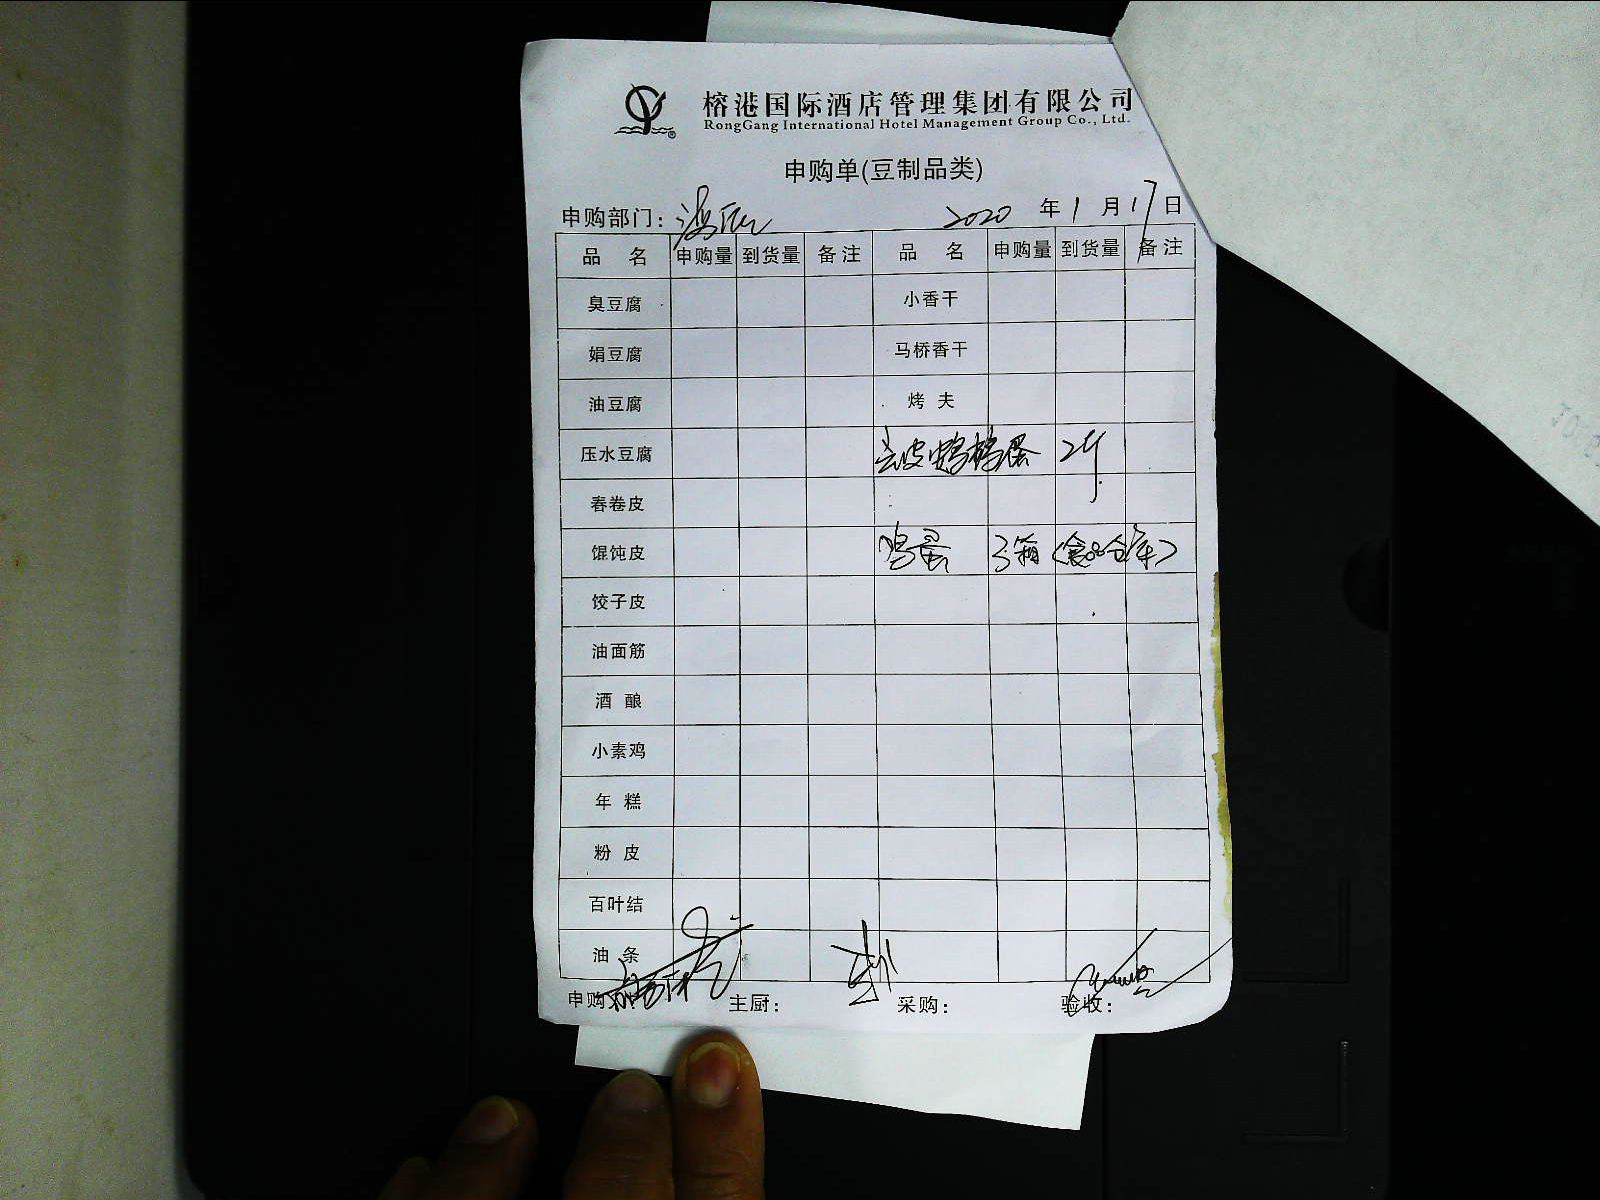 榕港国际酒店管理集团有限公司
RongGang International Hotel Management Group Co., Ltd.
®
申购单(豆制品类)
申购部门: 2020 年 1 月 17 日
品 名 申购量 到货量 备注 品 名 申购量 到货量 备注
臭豆腐 小香干
娟豆腐 马桥香干
油豆腐 烤 夫
压水豆腐 去皮鹌鹑蛋 2斤
春卷皮
馄饨皮 鸡蛋 3箱(食品仓库)
饺子皮
油面筋
酒 酿
小素鸡
年 糕
粉 皮
百叶结
油 条
申购人: 主厨: 采购: 验收: